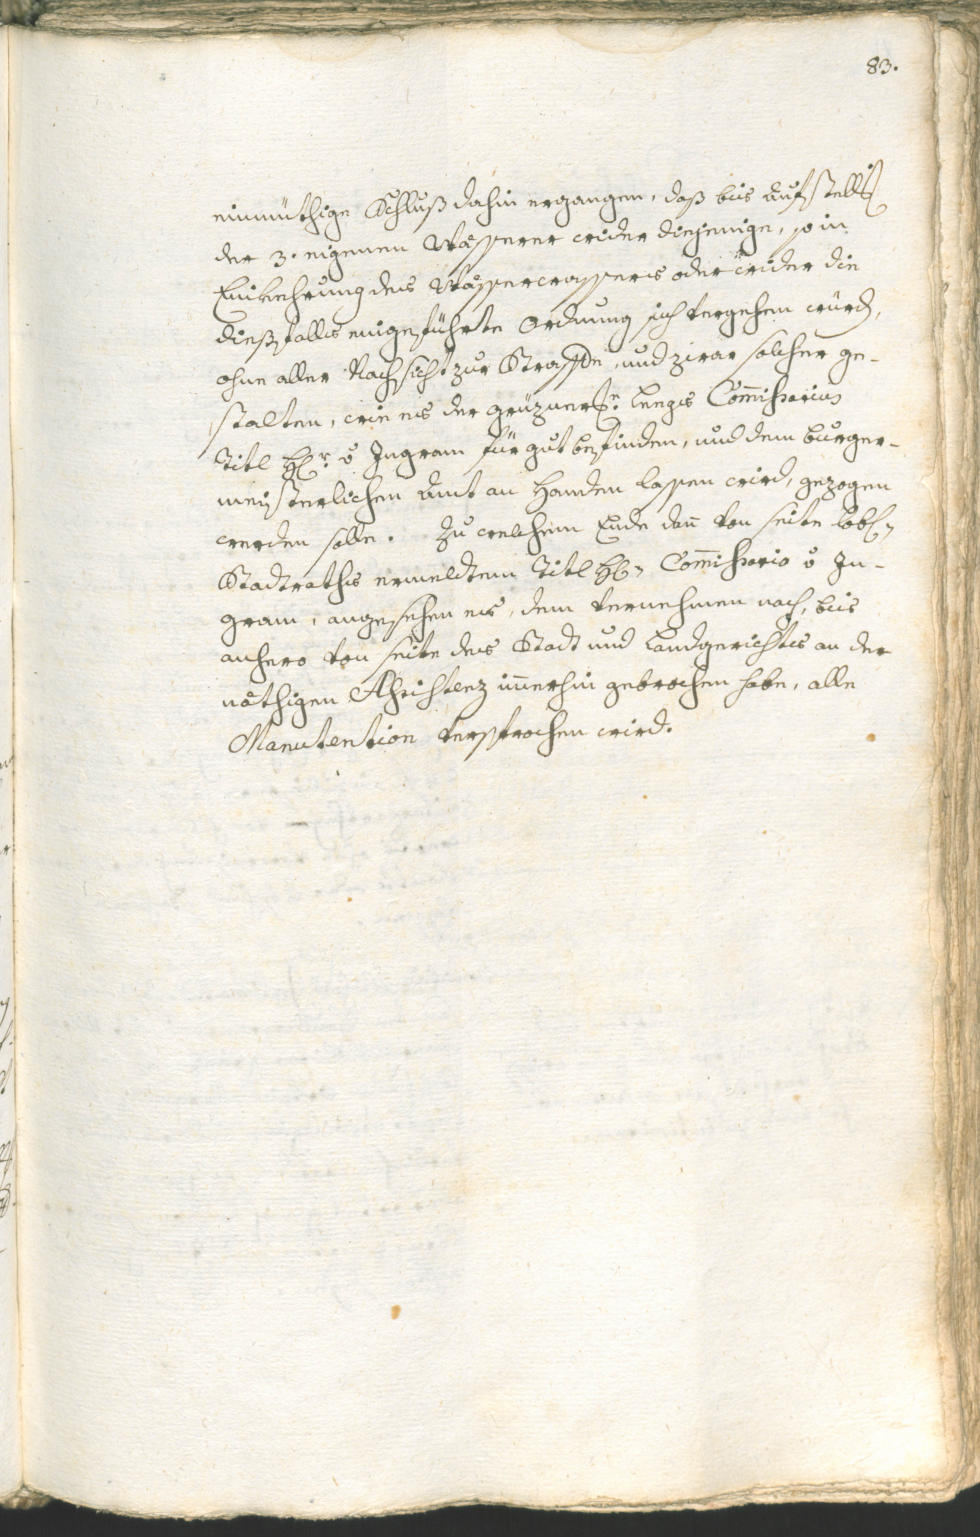 83.
einmüthige Schluß dahin ergangen, daß bis aufstell[un]g
der 3. eigenen Wässerer wider diejenige, so in
Einkehrung des Wässerwassers oder wider die
dießfalls eingeführte Ordnung sich vergehen wurd,
ohne aller Nachsicht zur Straffe, und zwar solcher ge-
stalten, wie es der Commißarius
Titl H[er]r v Ingram für gut befinden, und dem burger-
meisterlichen Amt an Handen lassen wird, gezogen
werden solle. Zu welchem Ende dan von seite löbl:
Stadtraths ermeldtem Titl H: Commißario v In-
gram, angesehen es, dem vernehmen nach, bis
anhero von seite des Stadt und Landgerichts an der
nöthigen Assistenz immerhin gebrochen habe, alle
Manutention versprochen wird.